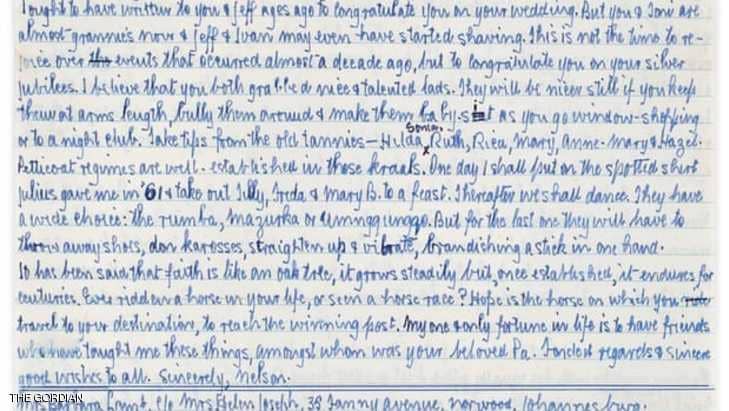 I ought to have written to you & Jeff ages ago to congratulate you on your wedding. But you & Toni are
almost grannies now & Jeff & Ivan may even have started shaving. This is not the time to re-
joice over the events that occurred almost a decade ago, but to congratulate you on your silver
jubilees. I believe that you both grabbed nice & talented lads. They will be nicer still if you keep
them at arms length, bully them around & make them baby-sit as you go window-shopping
or to a night club. Take tips from the old tannies – Hilda, Sonia, Ruth, Rica, Mary, Anne-Mary & Hazel.
Petticoat regimes are well-established in those kraals. One day I shall put on the spotted shirt
Julius gave me in '61 & take out Jilly, Freda & Mary B. to a feast. Thereafter we shall dance. They have
a wide choice: the rumba, mazurka or But for the last one they will have to
throw away shoes, don karosses, straighten up & vibrate, brandishing a stick in one hand.
It has been said that faith is like an oak tree, it grows steadily but, once established, it endures for
centuries. Ever ridden a horse in your life, or seen a horse race? Hope is the horse on which you
travel to your destination, to reach the winning post. My one & only fortune in life is to have friends
who have taught me these things, amongst whom was your beloved Pa. Fondest regards & sincere
good wishes to all. Sincerely, Nelson.
Barbara Lamb, c/o Mrs Helen Joseph, 35 Fanny Avenue, Norwood, Johannesburg.
THE GORDIAN